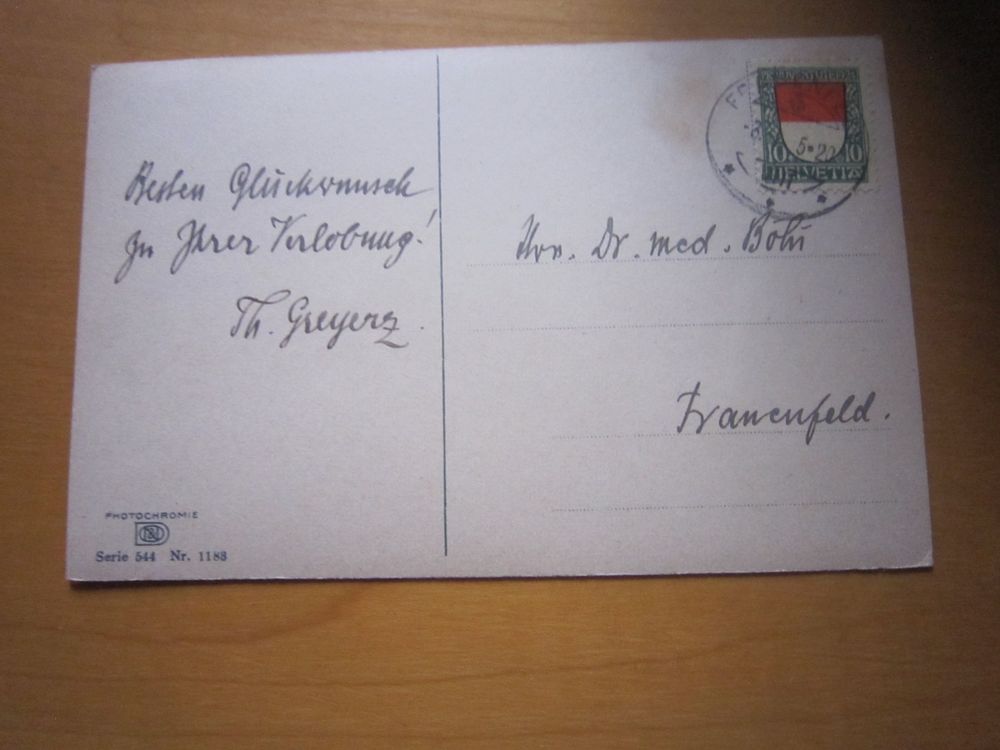 Besten Glückwunsch
zu Ihrer Verlobung!
Th. Greyerz.
Hrn. Dr. med. Böhi
Frauenfeld.
PHOTOCHROMIE
Serie 544 Nr. 1188
PRO JUVENTUTE
5•20
10 10
HELVETIA